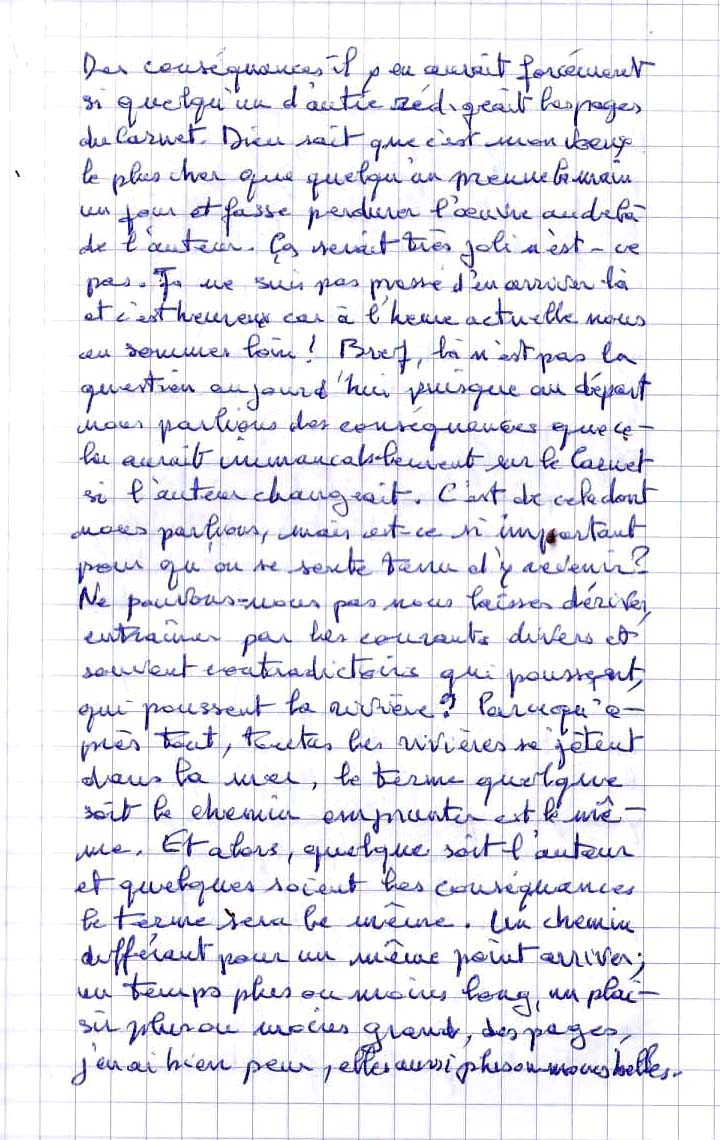 Des conséquances il y en aurait forcément
si quelqu'un d'autre rédigeait les pages
du Carnet. Dieu sait que c'est mon voeux
le plus cher que quelqu'un prenne la main
un jour et fasse perdurer l'œuvre au delà
de l'auteur. Ça serait très joli n'est-ce
pas. Je ne suis pas pressé d'en arriver là
et c'est heureux car à l'heure actuelle nous
en sommes loin ! Bref, là n'est pas la
question aujourd'hui puisque au départ
nous parlions des conséquences que ce-
la aurait immancablement sur le Carnet
si l'auteur changeait. C'est de cela dont
nous parlions, mais est-ce si important
pour qu'on se sente tenu d'y revenir ?
Ne pouvons-nous pas nous laisser dériver,
entraîner par les courants divers et
souvent contradictoire qui poussent,
qui poussent la rivière ? Parcequ'a-
près tout, toutes les rivières se jètent
dans la mer, le terme quelque
soit le chemin emprunter est le mê-
me. Et alors, quelque soit l'auteur
et quelques soient les conséquances
le terme sera le même. Un chemin
différant pour un même point arriver ;
un temps plus ou moins long, un plai-
sir plus ou moins grand, des pages,
j'en ai bien peur, elles aussi plus ou moins belles.